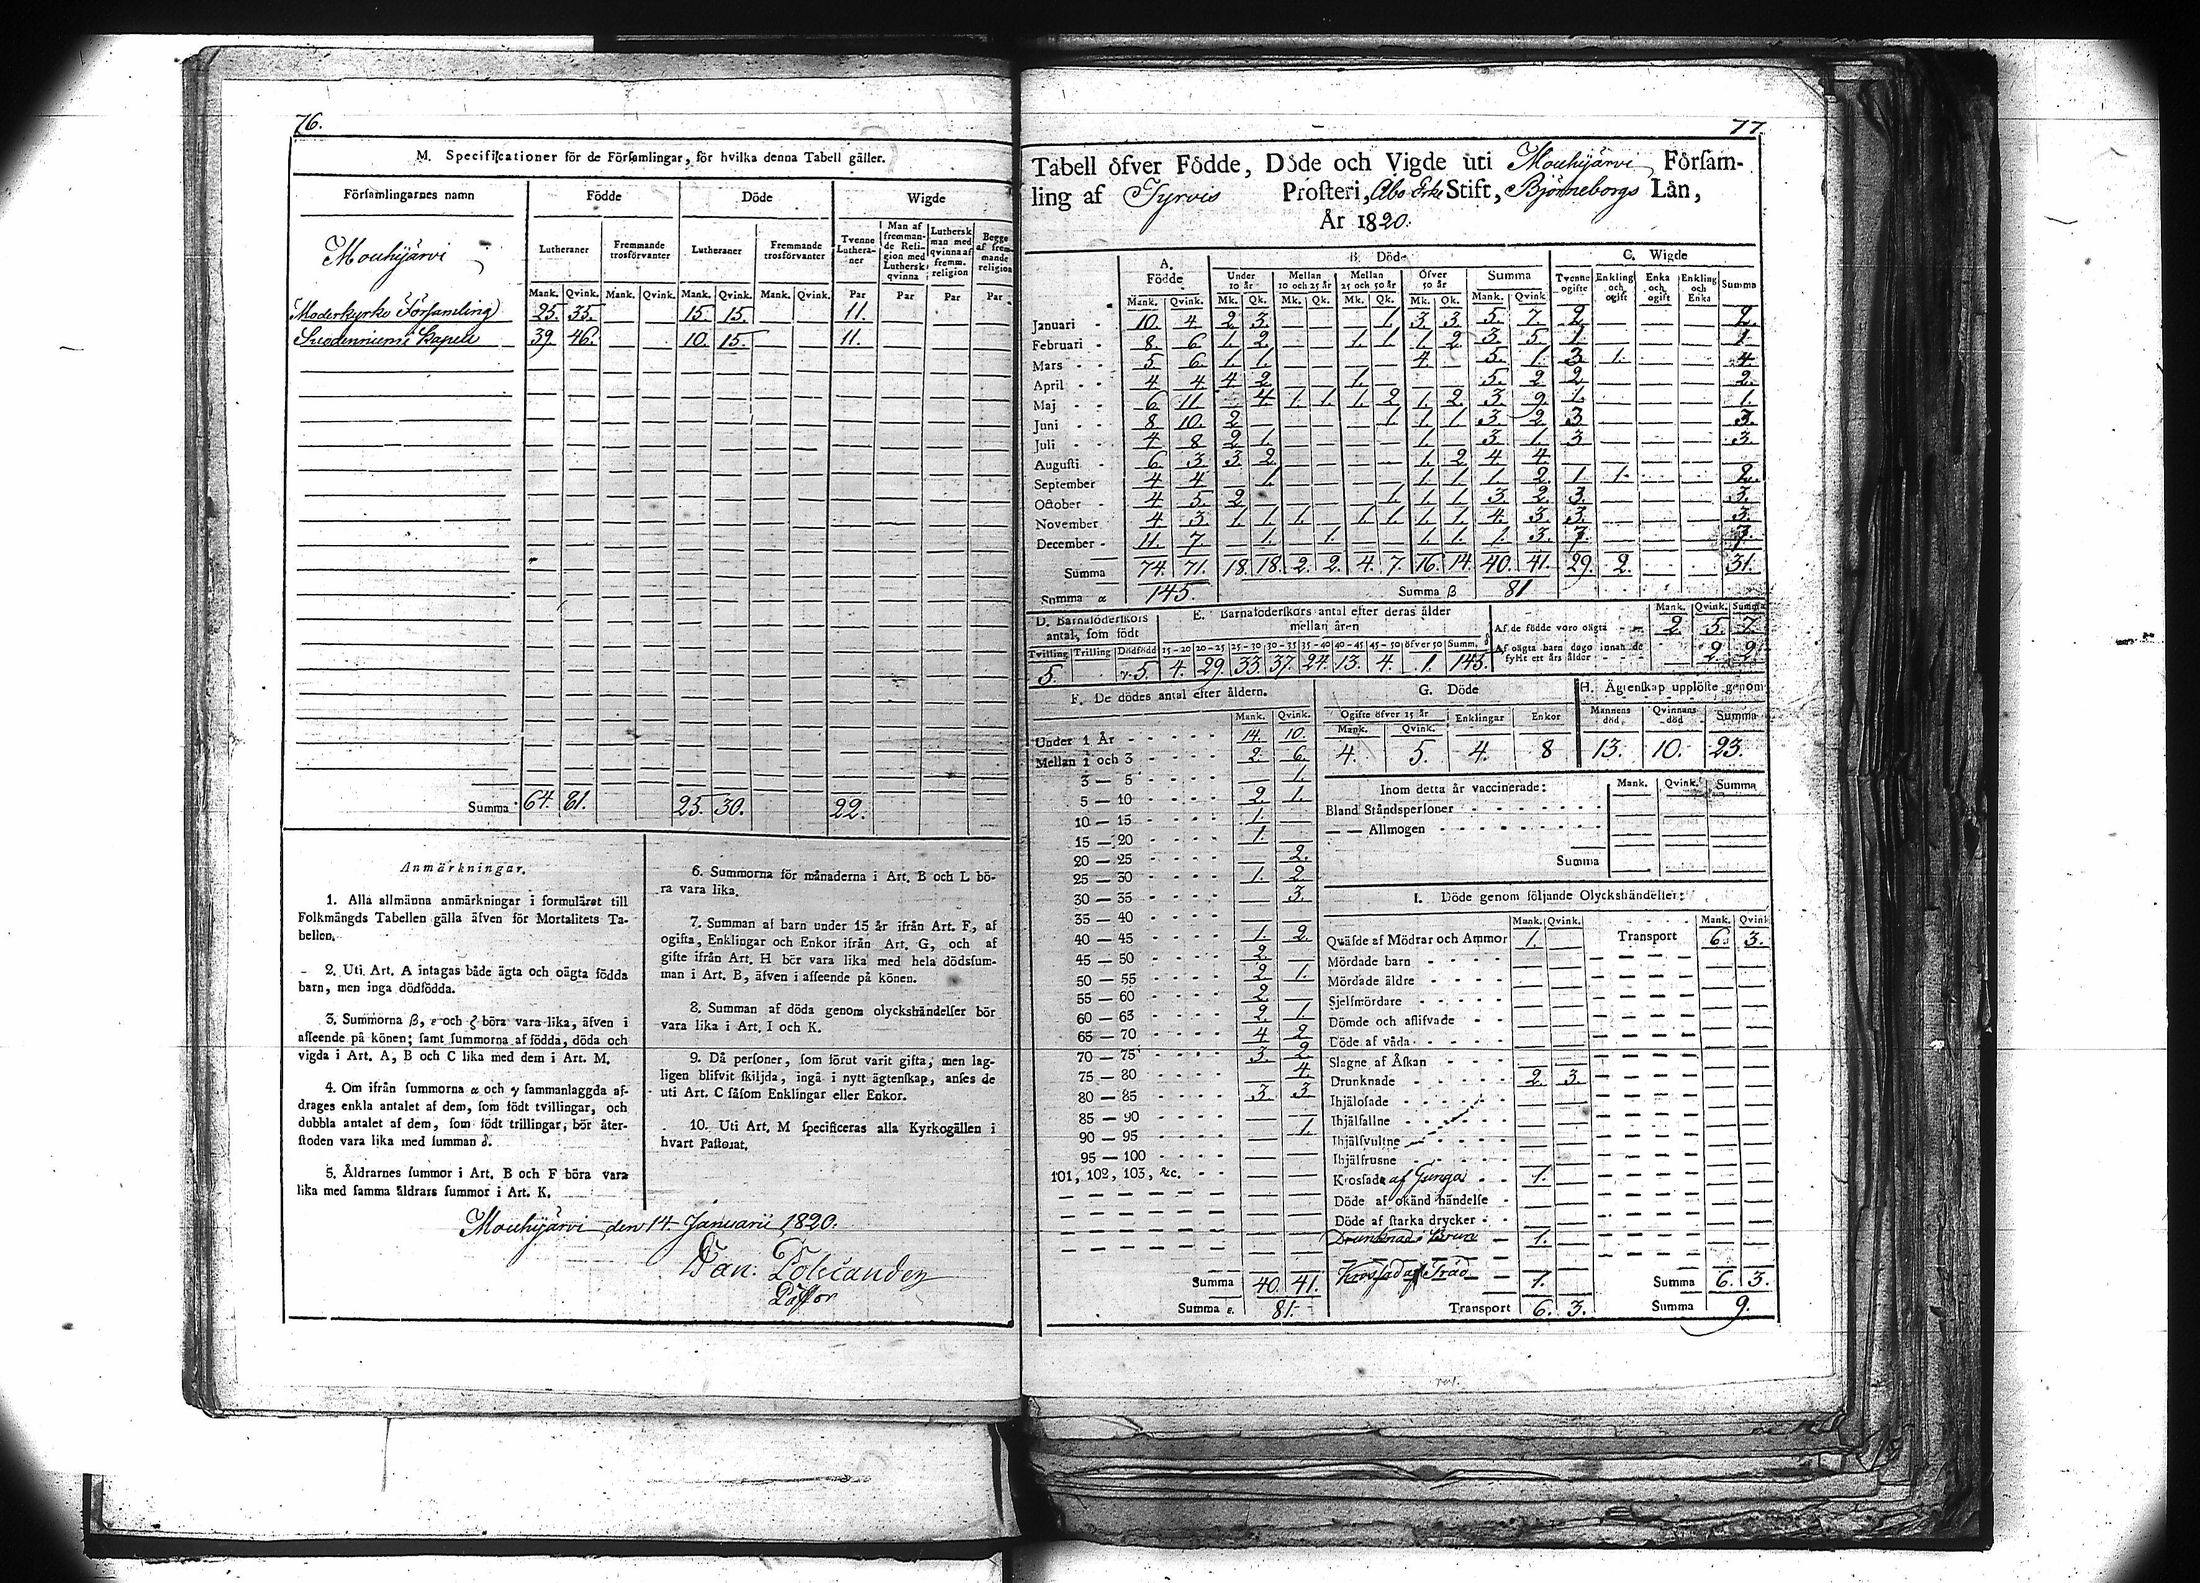 76.
M. Specificationer för de Församlingar, för hvilka denna Tabell gäller.
Församlingarnes namn Födde Döde Wigde
Mouhijärvi
Lutheraner Fremmande trosförvanter Lutheraner Fremmande trosförvanter Tvenne Lutheraner Man af fremmande Religion med Luthersk qvinna Luthersk man med qvinna af fremm. religion Begge af fremmande religion
Mank. Qvink. Mank. Qvink. Mank. Qvink. Mank. Qvink. Par Par Par Par
Moderkyrko Församling 25. 35. 15. 15. 11.
Suodenniemi Kapell 39. 46. 10. 15. 11.
Summa 64. 81. 25. 30. 22.
Anmärkningar.
1. Alla allmänna anmärkningar i formuläret till
Folkmängds Tabellen gälla äfven för Mortalitets Ta-
bellen.
2. Uti Art. A intagas både ägta och oägta födda
barn, men inga dödfödda.
3. Summorna β, ε och ζ böra vara lika, äfven i
afseende på könen; samt summorna af födda, döda och
vigda i Art. A, B och C lika med dem i Art. M.
4. Om ifrån summorna α och γ sammanlagda af-
drages enkla antalet af dem, som födt tvillingar, och
dubbla antalet af dem, som födt trillingar, bör åter-
stoden vara lika med summan δ.
5. Åldrarnes summor i Art. B och F böra vara
lika med samma åldrars summor i Art. K.
6. Summorna för månaderna i Art. B och L bö-
ra vara lika.
7. Summan af barn under 15 år ifrån Art. F, af
ogifta, Enklingar och Enkor ifrån Art. G, och af
gifte ifrån Art. H bör vara lika med hela dödssum-
man i Art. B, äfven i afseende på könen.
8. Summan af döda genom olyckshändelser bör
vara lika i Art. I och K.
9. Då personer, som förut varit gifta, men lag-
ligen blifvit skiljda, ingå i nytt ägtenskap, anses de
uti Art. C såsom Enklingar eller Enkor.
10. Uti Art. M specificeras alla Kyrkogällen i
hvart Pastorat.
Mouhijärvi den 14 Januarii 1820.
Dan:
Pastor
77.
Tabell öfver Födde, Döde och Vigde uti Mouhijärvi Församling
af Tyrvis Prosteri, Åbo Erke Stift, Björneborgs Län,
År 1820.
A. Födde B. Döde C. Wigde
Under 10 år Mellan 10 och 25 år Mellan 25 och 50 år Öfver 50 år Summa Tvenne ogifte Enkling och ogift Enka och ogift Enkling och Enka Summa
Mank. Qvink. Mk. Qk. Mk. Qk. Mk. Qk. Mk. Qk. Mank. Qvink.
Januari 10. 4. 2. 3. 1. 3. 3. 5. 7. 2. 2.
Februari 8. 6. 1. 2. 1. 1. 1. 2. 3. 5. 1. 1.
Mars 5. 6. 1. 1. 4. 5. 1. 3. 1. 4.
April 4. 4. 4. 2. 1. 5. 2. 2. 2.
Maj 6. 11. 4. 1. 1. 1. 2. 1. 2. 3. 9. 1. 1.
Juni 8. 10. 2. 1. 1. 1. 3. 2. 3. 3.
Juli 4. 8. 2. 1. 1. 3. 1. 3. 3.
Augusti 6. 3. 3. 2. 1. 2. 4. 4.
September 4. 4. 1. 1. 1. 1. 2. 1. 1. 2.
October 4. 5. 2. 1. 1. 1. 3. 2. 3. 3.
November 4. 3. 1. 1. 1. 1. 1. 1. 1. 4. 3. 3. 3.
December 11. 7. 1. 1. 1. 1. 1. 3. 7. 7.
Summa 74. 71. 18. 18. 2. 2. 4. 7. 16. 14. 40. 41. 29. 2. 31.
Summa α 145. Summa β 81
D. Barnaföderskors antal, som födt E. Barnaföderskors antal efter deras ålder mellan åren Mank. Qvink. Summa
Af de födde voro oägta 2. 5. 7.
Af oägta barn dogo innan de fyllt ett års ålder 2. 2.
Tvilling Trilling Dödfödd 15-20 20-25 25-30 30-35 35-40 40-45 45-50 öfver 50 Summ. δ
5. γ. 5. 4. 29. 33. 37. 24. 13. 4. 1. 145.
F. De dödes antal efter åldern.
Mank. Qvink.
Under 1 År 14. 10.
Mellan 1 och 3 2. 6.
3 — 5 1.
5 — 10 2. 1.
10 — 15 1.
15 — 20 1.
20 — 25 2.
25 — 30 1. 2.
30 — 35 3.
35 — 40
40 — 45 1. 2.
45 — 50 2.
50 — 55 2. 1.
55 — 60 2.
60 — 65 2. 1.
65 — 70 4. 2.
70 — 75 3. 2.
75 — 80 4.
80 — 85 3. 3.
85 — 90
90 — 95 1.
95 — 100
101, 102, 103, &c.
Summa 40. 41.
Summa ε. 81.
G. Döde
Ogifte öfver 15 år Enklingar Enkor
Mank. Qvink.
4. 5. 4. 8
H. Ägtenskap upplöste genom
Mannens död. Qvinnans död Summa
13. 10. 23.
Inom detta år vaccinerade: Mank. Qvink. Summa
Bland Ståndspersoner
— — Allmogen
Summa
I. Döde genom följande Olyckshändelser:
Mank. Qvink. Mank. Qvink.
Quäfde af Mödrar och Ammor 1. Transport 6. 3.
Mördade barn
Mördade äldre
Sjelfmördare
Dömde och aflifvade
Döde af våda
Slagne af Åskan
Drunknade 2. 3.
Ihjälosade
Ihjälfallne
Ihjälsvultne
Ihjälfrusne
Krossade af Gunga 1.
Döde af okänd händelse
Döde af starka drycker
Drunknad i Brun 1.
Krossad af Träd 1. Summa 6. 3.
Transport 6. 3. Summa 9.